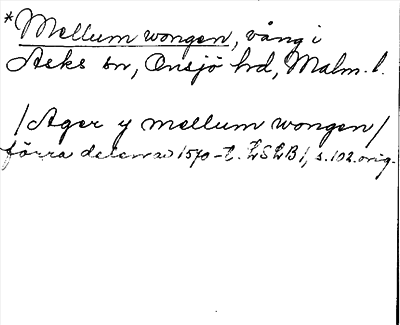 *Mellum wongen, vång i
Asks sn, Onsjö hd, Malm. l.
/Ager y mellum wongen/
förra delen av 1570-t. LSLB 1, s. 102. orig.